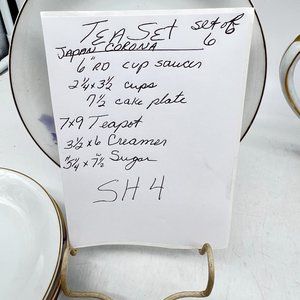 TEA SET set of 6
JAPAN CORONA
6" RD cup saucer
2 1/4 x 3 1/2 cups
7 1/2 cake plate
7x9 Teapot
3 1/2 x 6 Creamer
5 1/4 x 7 1/2 Sugar
SH4